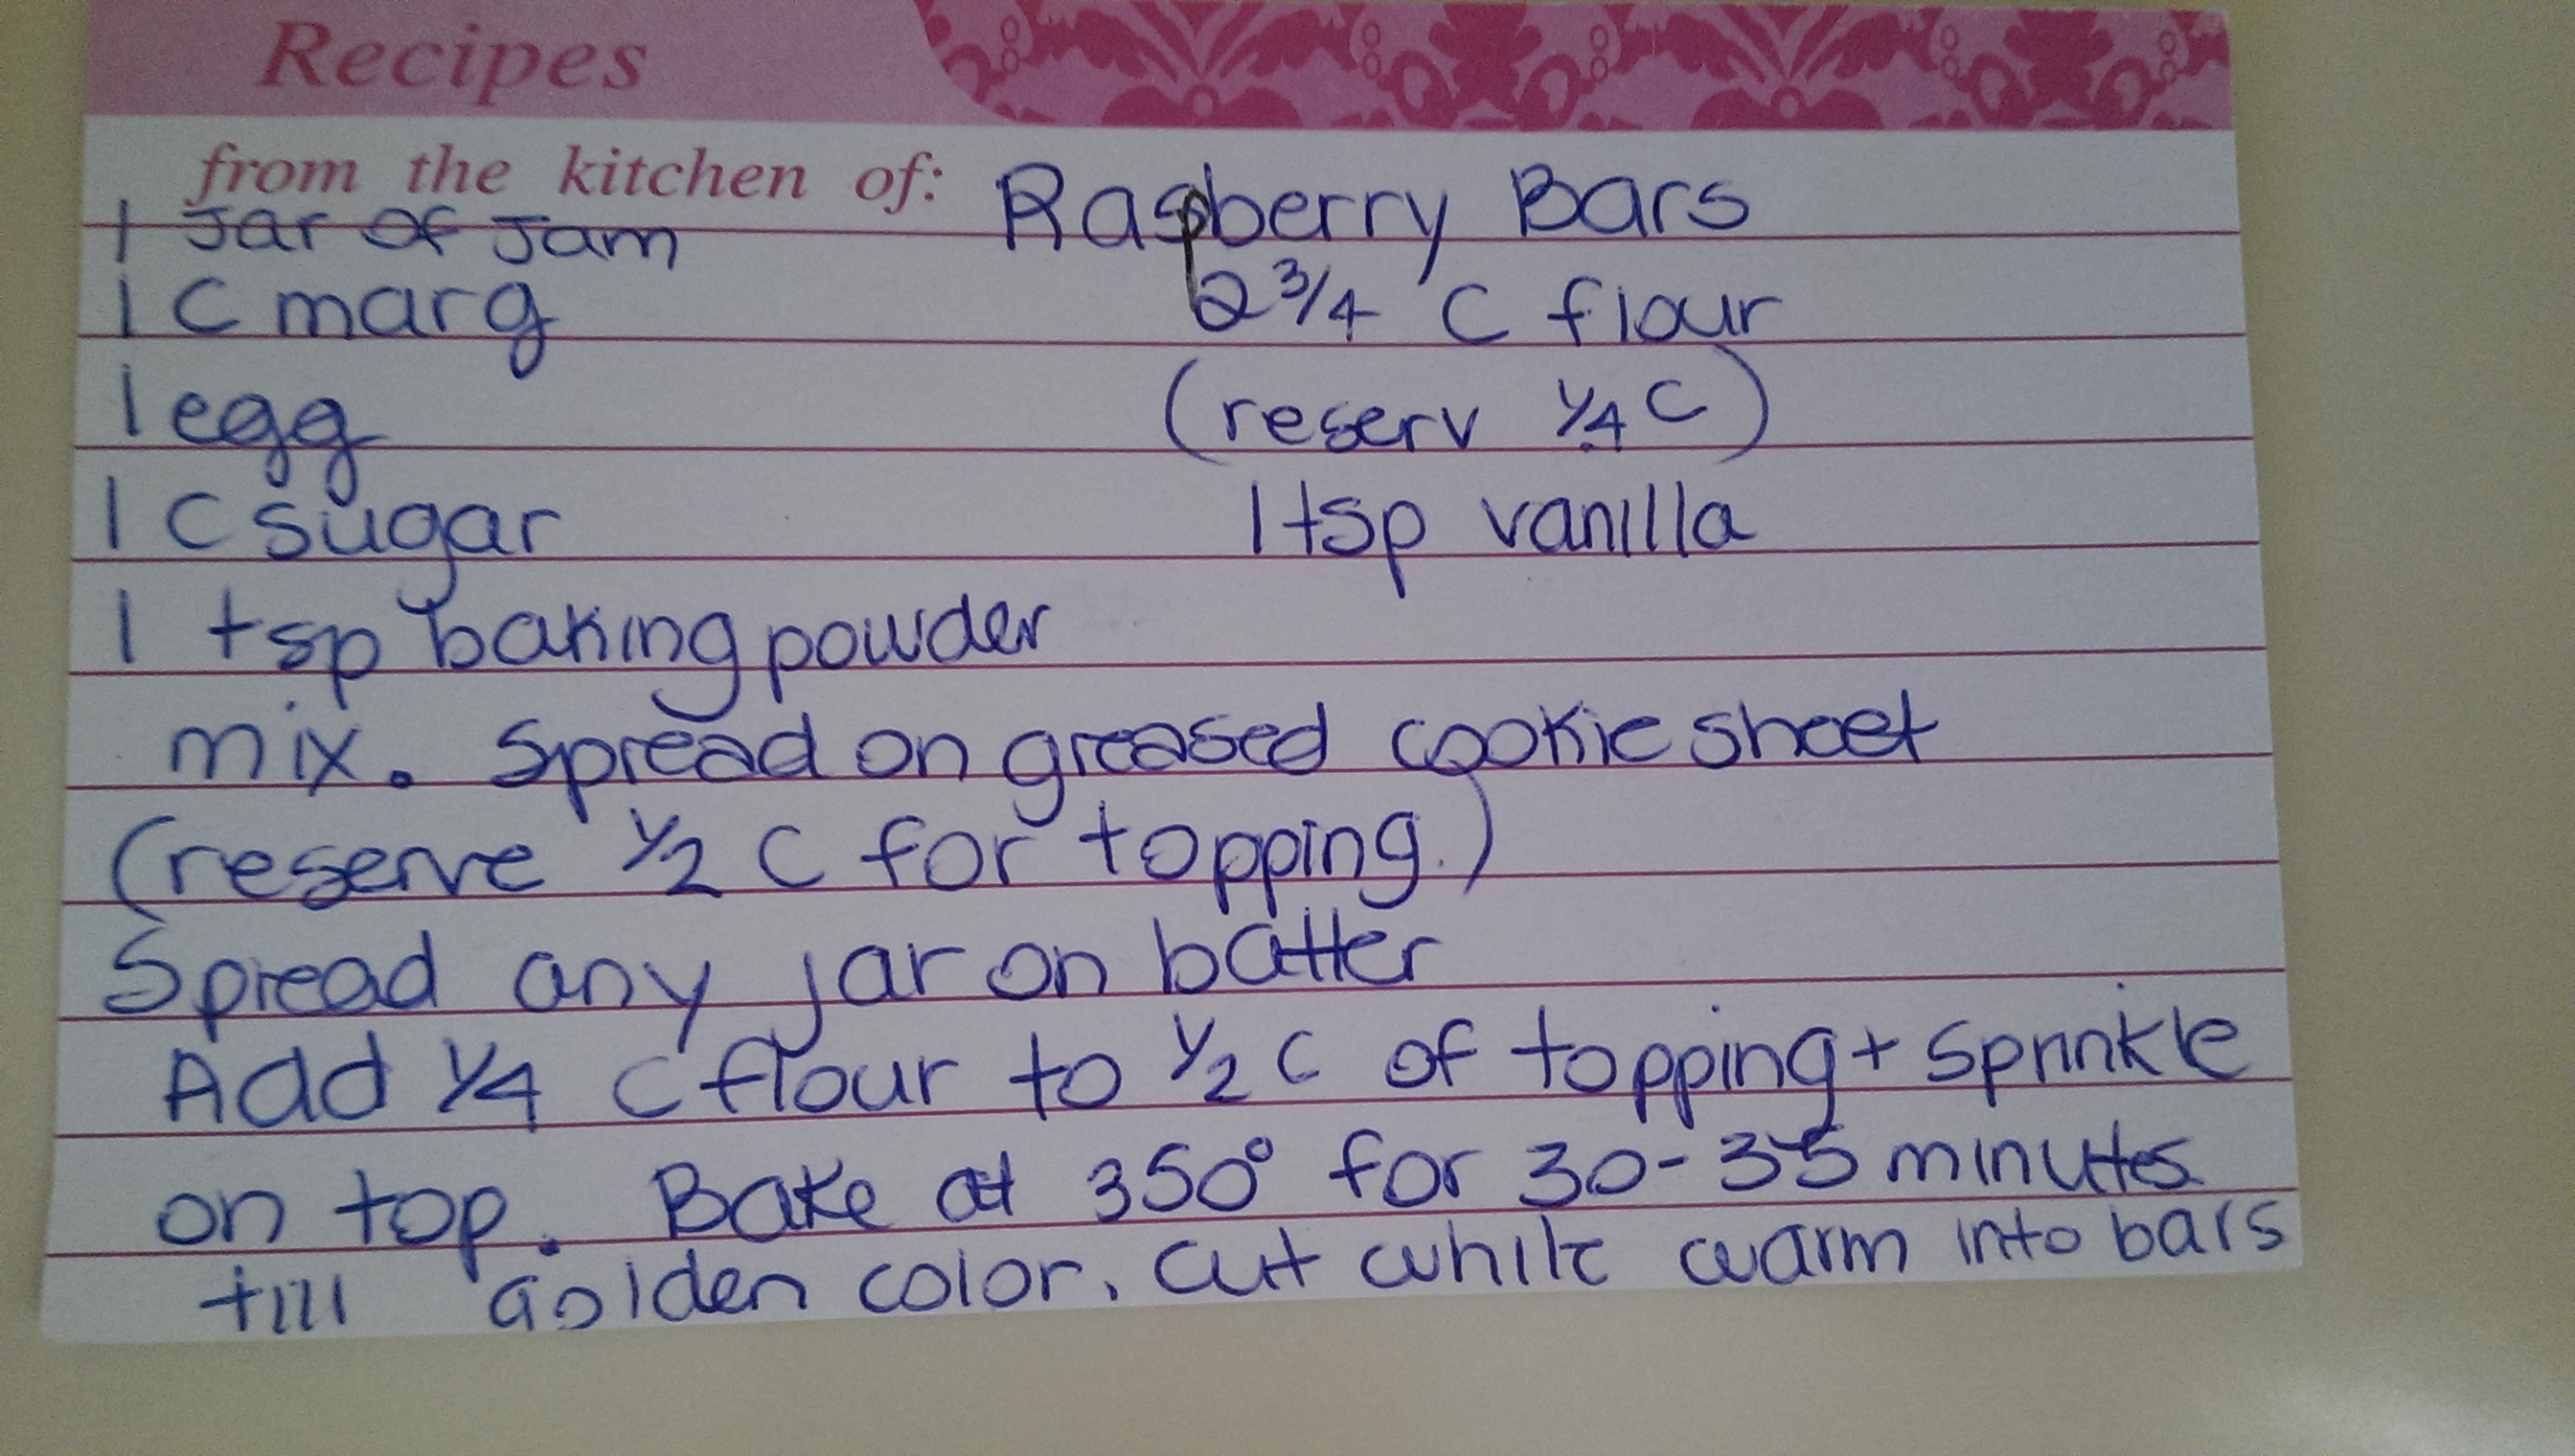 Recipes
from the kitchen of: Raspberry Bars
1 Jar of Jam
1 C marg 2 3/4 C flour
1 egg (reserv 1/4 C)
1 C sugar 1 tsp vanilla
1 tsp baking powder
mix. Spread on greased cookie sheet
(reserve 1/2 C for topping.)
Spread any jar on batter
Add 1/4 C flour to 1/2 C of topping + sprinkle
on top. Bake at 350° for 30-35 minutes
till Golden color. Cut while warm into bars